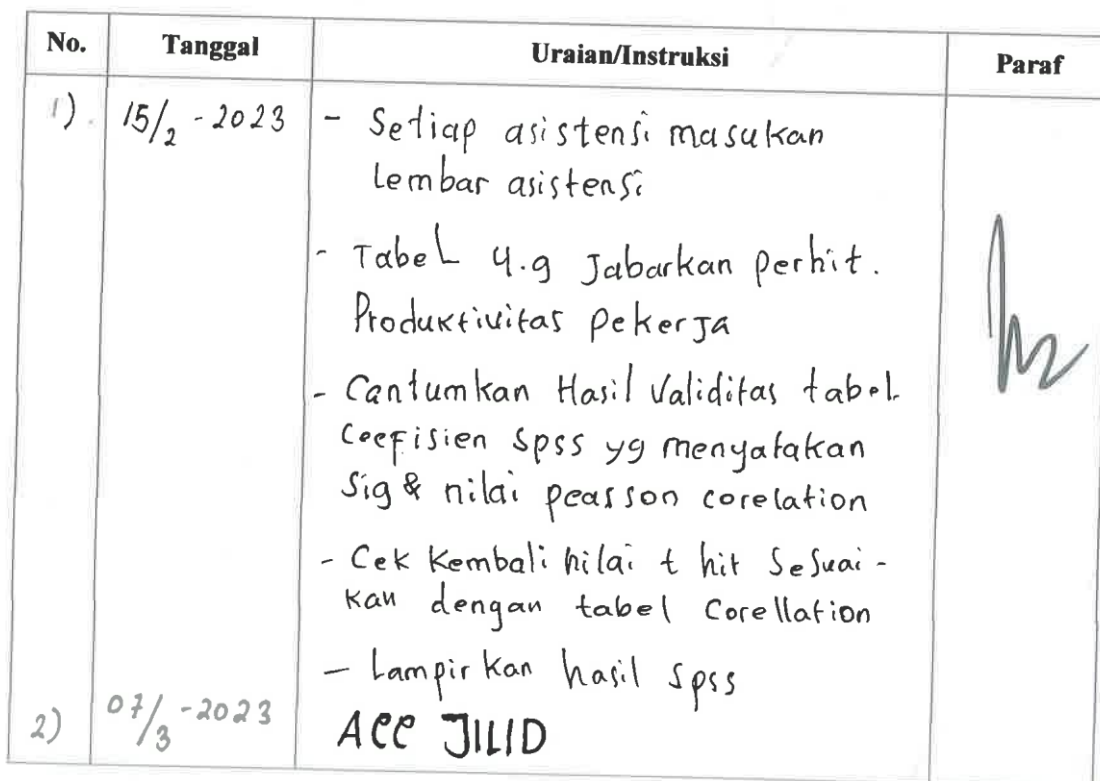 No. Tanggal Uraian/Instruksi Paraf
1). 15/2 - 2023 - Setiap asistensi masukan
Lembar asistensi
- Tabel 4.9 Jabarkan perhit.
Produktivitas pekerja
- Cantumkan Hasil Validitas tabel
Coefisien SPSS yg menyatakan
Sig & nilai peasson corelation
- Cek Kembali nilai t hit Sesuai-
kan dengan tabel Corellation
- Lampirkan hasil spss
2) 07/3 - 2023 ACC JILID